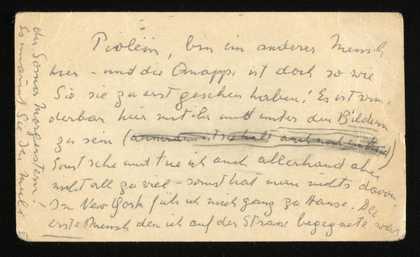 bin ein anderer Mensch
hier - und die ist doch so wie
Sie sie zuerst gesehen haben! Es ist wun-
derbar hier mit ihr und unter den Bildern
zu sein (
Sonst sehe und tue ich auch allerhand aber
nicht all zu viel - sonst hat man nichts davon.
In New York fühl ich mich ganz zu Hause. Der
erste Mensch den ich auf der Strasse begegnete war
der Soma Morgenstern!